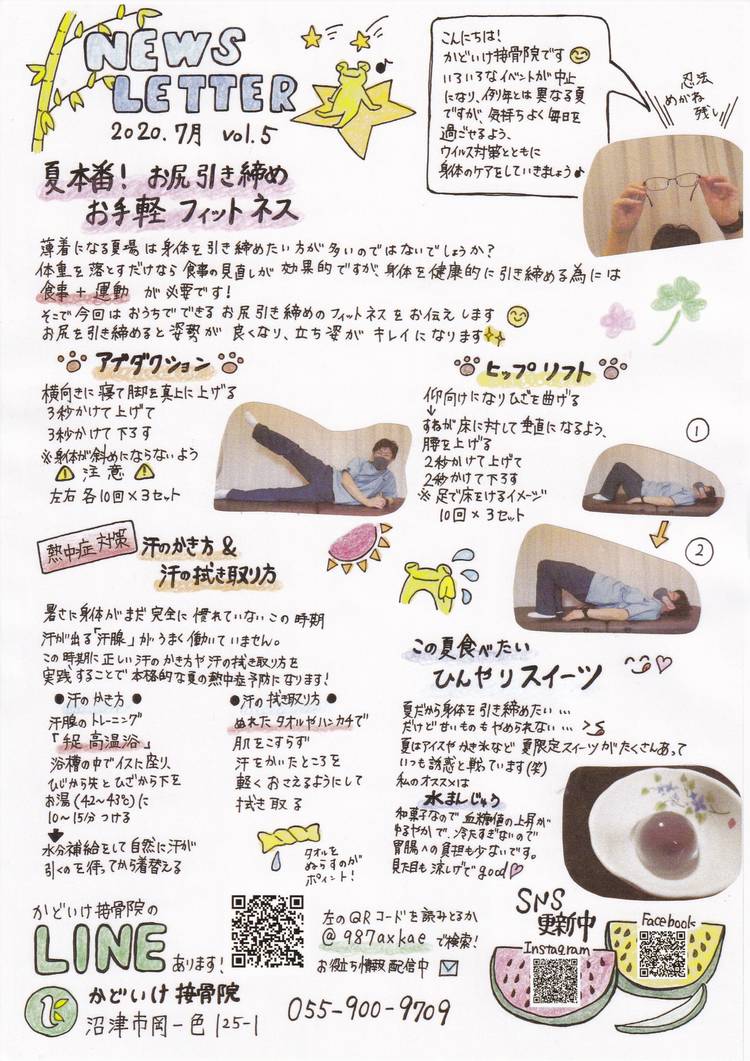 NEWS
LETTER
2020.7月 vol.5
こんにちは!
かどいけ接骨院です
いろいろなイベントが中止
になり、例年とは異なる夏
ですが、気持ちよく毎日を
過ごせるよう、
ウイルス対策とともに
身体のケアをしていきましょう♪
忍法
めがね
残し
夏本番! お尻引き締め
お手軽 フィットネス
薄着になる夏場は身体を引き締めたい方が多いのではないでしょうか?
体重を落とすだけなら食事の見直しが効果的ですが、身体を健康的に引き締める為には
食事+運動 が必要です!
そこで今回はおうちでできるお尻引き締めのフィットネスをお伝えします
お尻を引き締めると姿勢が良くなり、立ち姿がキレイになります
アブダクション
横向きに寝て脚を真上に上げる
3秒かけて上げて
3秒かけて下ろす
※身体が斜めにならないよう
注意
左右各10回×3セット
ヒップリフト
仰向けになりひざを曲げる
↓
すねが床に対して垂直になるよう、
腰を上げる
2秒かけて上げて
2秒かけて下す
※足で床をけるイメージ
10回×3セット
①
②
熱中症対策
汗のかき方&
汗の拭き取り方
暑さに身体がまだ完全に慣れていないこの時期
汗が出る「汗腺」がうまく働いていません。
この時期に正しい汗のかき方や汗の拭き取り方を
実践することで本格的な夏の熱中症予防になります!
●汗のかき方●
汗腺のトレーニング
「手足高温浴」
浴槽の中でイスに座り、
ひじから先とひざから下を
お湯(42~43℃)に
10~15分つける
↓
水分補給をして自然に汗が
引くのを待ってから着替える
●汗の拭き取り方●
ぬれたタオルやハンカチで
肌をこすらず
汗をかいたところを
軽くおさえるようにして
拭き取る
タオルを
ぬらすのが
ポイント!
この夏食べたい
ひんやりスイーツ
夏だから身体を引き締めたい…
だけど甘いものもやめられない…
夏はアイスやかき氷など夏限定スイーツがたくさんあって
いつも誘惑と戦っています(笑)
私のオススメは
水まんじゅう
和菓子なので血糖値の上昇が
ゆるやかで、冷たすぎないので
胃腸への負担も少ないです。
見た目も涼しげでgood♡
かどいけ接骨院の
LINE
あります!
左のQRコードを読みとるか
@987axkaeで検索!
お役立ち情報配信中
SNS
更新中
Instagram
Facebook
かどいけ接骨院
沼津市岡一色125-1
055-900-9709